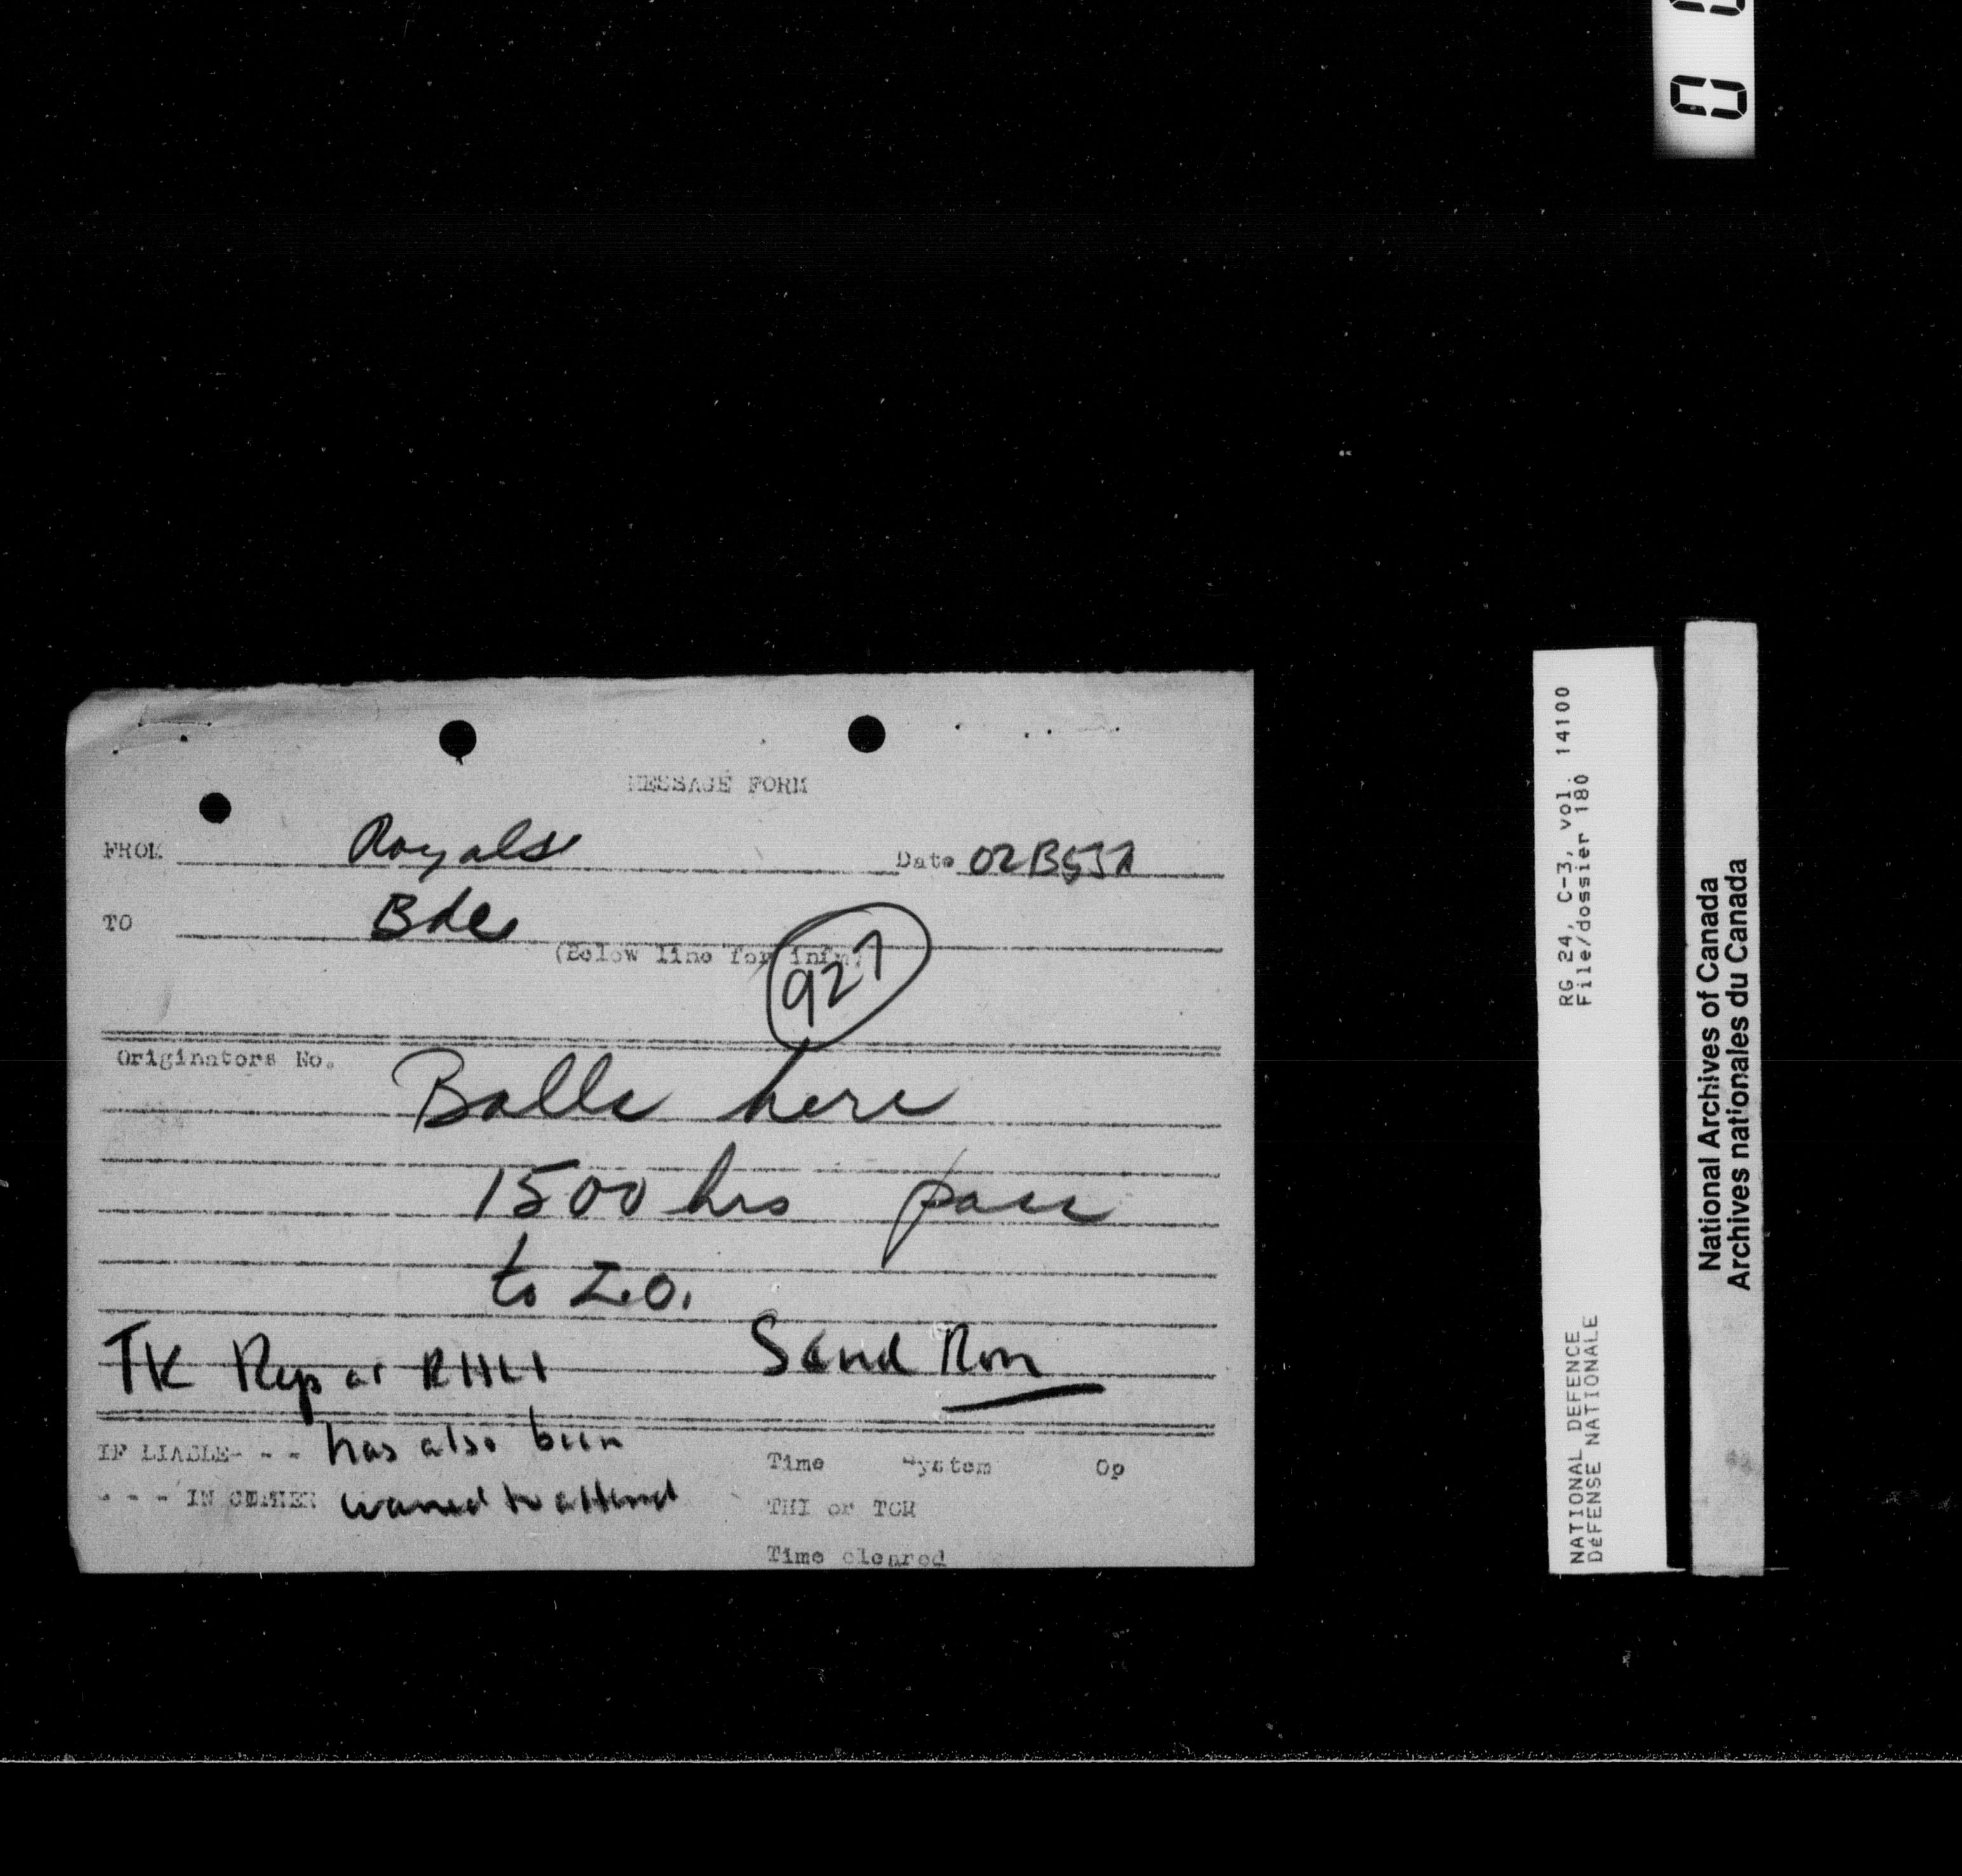 MESSAGE FORM
FROM Royals Date
TO Bde
(Below line for infm)
927
Originators No.
Balls here
1500 hrs pass
to I.O.
TK Rep at RHLI Send Ron
has also been
IF LIABLE- - -
warned to attend
- - - IN CIPHER
Time System Op
THI or TOR
Time cleared
RG 24, C-3, vol. 14100
File/dossier 180
NATIONAL DEFENCE
DéFENSE NATIONALE
National Archives of Canada
Archives nationales du Canada